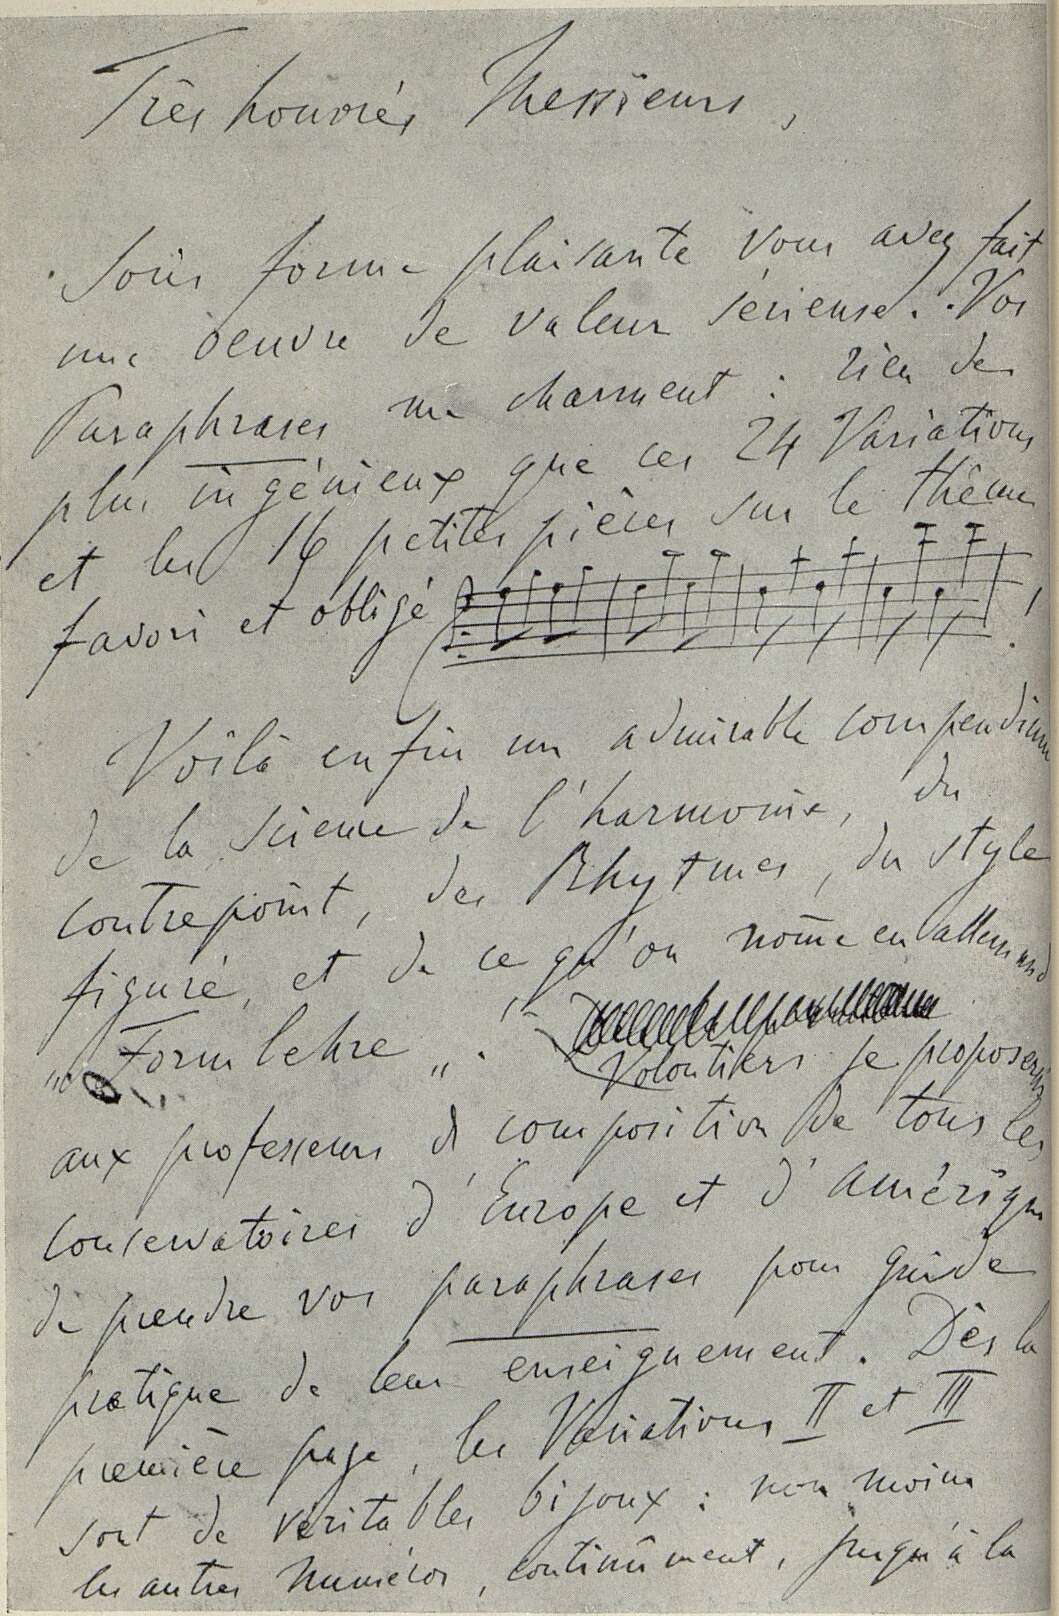 Très honorés Messieurs,
Sous forme plaisante vous avez fait
une oeuvre de valeur sérieuse. Vos
Paraphrases me charment : rien de
plus ingénieux que ces 24 Variations
et les 16 petites pièces sur le thême
favori et obligé !
Voilà enfin un admirable compendium
de la science de l'harmonie, du
contrepoint, des Rhytmes, du style
figuré, et de ce qu'on nom̄e en allemand
„Formlehre„.
Volontiers je proposerai
aux professeurs de composition de tous les
conservatoires d'Europe et d'Amérique
de prendre vos paraphrases pour guide
pratique de leur enseignement. Dès la
première page, les Variations II et III
sont de véritables bijoux : non moins
les autres numéros, continûment, jusqu'à la